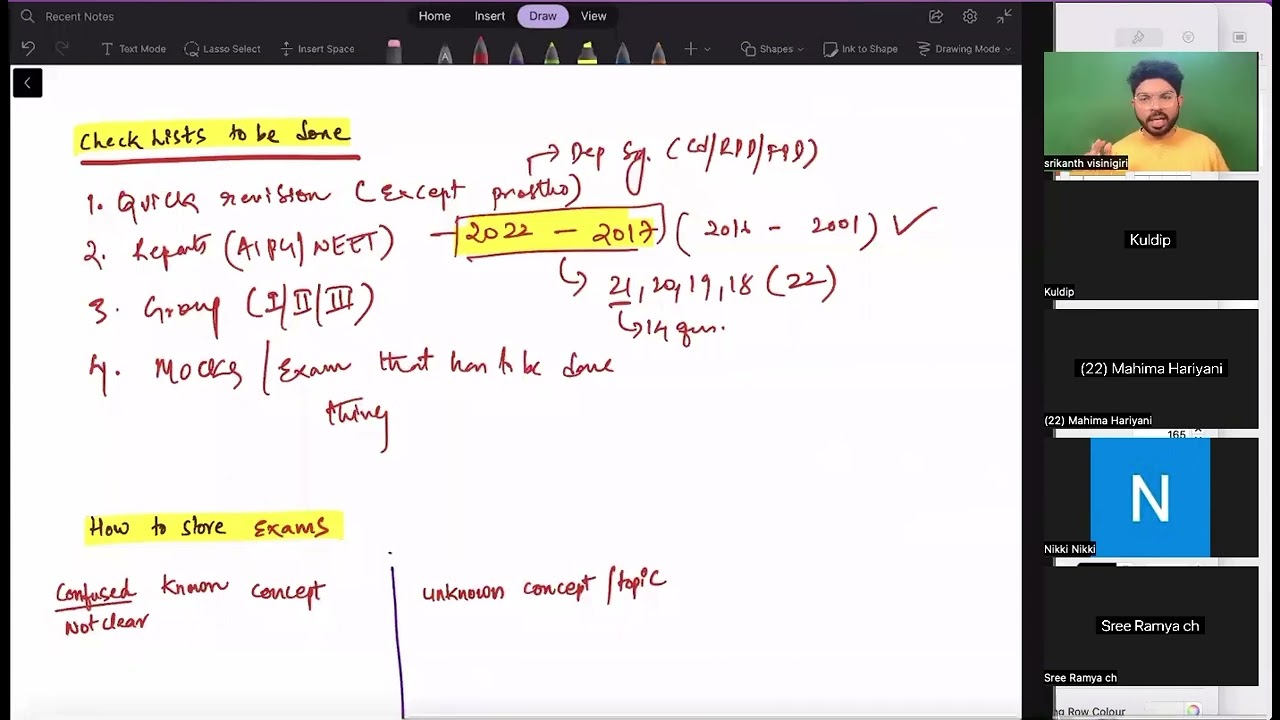 Recent Notes
Home Insert Draw View
Text Mode Lasso Select Insert Space Shapes Ink to Shape Drawing Mode
Check Lists to be done
1. Quick revision (Except prostho) → Dep Sg. (Cd/RPD/FPD)
2. Repeats (AIPG/NEET) – 2022 – 2017 (2016 – 2001) ✓
21, 20, 19, 18 (22)
14 qus.
3. Group (I/II/III)
4. Mocks / Exam that has to be done
thing
How to store Exams
Confused known concept
Not clear
unknown concept/topic
srikanth visinigiri
Kuldip
Kuldip
(22) Mahima Hariyani
(22) Mahima Hariyani
165
N
Nikki Nikki
Sree Ramya ch
Sree Ramya ch
Row Colour